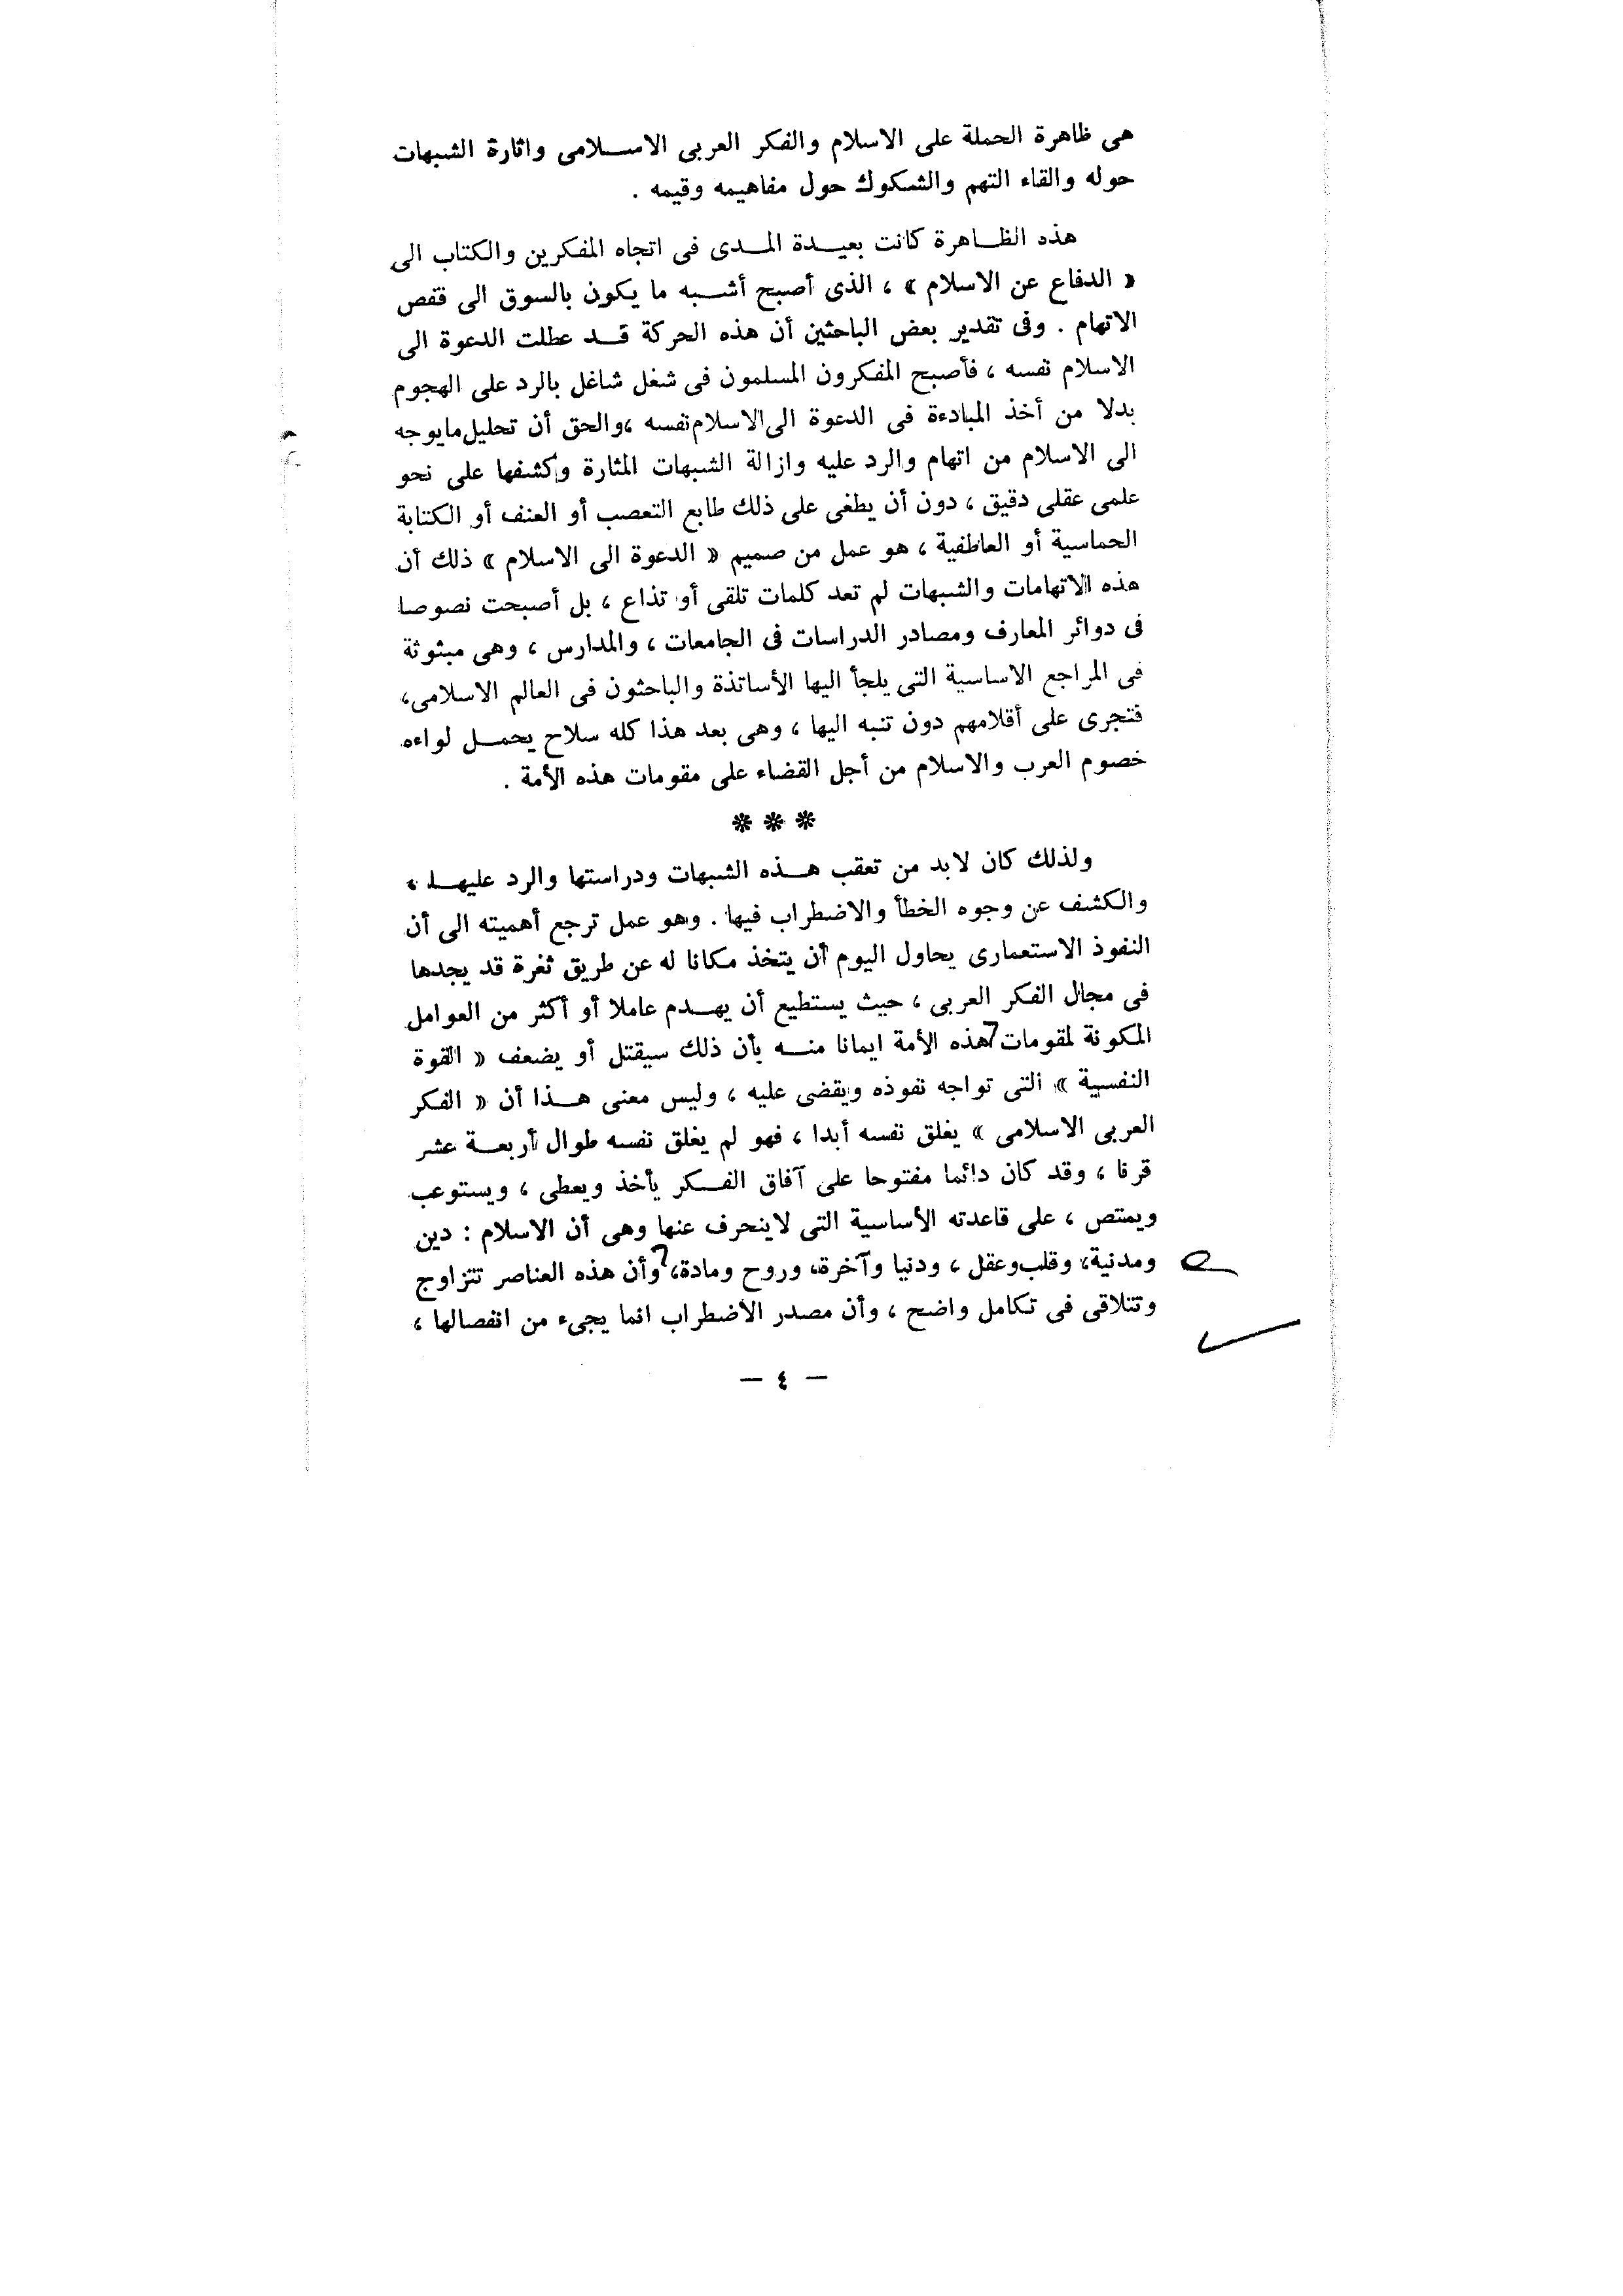 هى ظاهرة الحملة على الاسلام والفكر العربى الاسلامى واثارة الشبهات
حوله والقاء التهم والشكوك حول مفاهيمه وقيمه .
هذه الظاهرة كانت بعيدة المدى فى اتجاه المفكرين والكتاب الى
« الدفاع عن الاسلام » ، الذى أصبح أشبه ما يكون بالسوق الى قفص
الاتهام . وفى تقدير بعض الباحثين أن هذه الحركة قد عطلت الدعوة الى
الاسلام نفسه ، فأصبح المفكرون المسلمون فى شغل شاغل بالرد على الهجوم
بدلا من أخذ المبادءة فى الدعوة الى الاسلام نفسه ، والحق أن تحليل مايوجه
الى الاسلام من اتهام والرد عليه وازالة الشبهات المثارة وكشفها على نحو
علمى عقلى دقيق ، دون أن يطغى على ذلك طابع التعصب أو العنف أو الكتابة
الحماسية أو العاطفية ، هو عمل من صميم « الدعوة الى الاسلام » ذلك أن
هذه الاتهامات والشبهات لم تعد كلمات تلقى أو تذاع ، بل أصبحت نصوصا
فى دوائر المعارف ومصادر الدراسات فى الجامعات ، والمدارس ، وهى مبثوثة
فى المراجع الاساسية التى يلجأ اليها الأساتذة والباحثون فى العالم الاسلامى،
فتجرى على أقلامهم دون تنبه اليها ، وهى بعد هذا كله سلاح يحمل لواءه
خصوم العرب والاسلام من أجل القضاء على مقومات هذه الأمة .
* * *
ولذلك كان لابد من تعقب هذه الشبهات ودراستها والرد عليها ،
والكشف عن وجوه الخطأ والاضطراب فيها . وهو عمل ترجع أهميته الى أن
النفوذ الاستعمارى يحاول اليوم أن يتخذ مكانا له عن طريق ثغرة قد يجدها
فى مجال الفكر العربى ، حيث يستطيع أن يهدم عاملا أو أكثر من العوامل
المكونة لمقومات هذه الأمة ايمانا منه بأن ذلك سيقتل أو يضعف « القوة
النفسية » التى تواجه نفوذه ويقضى عليه ، وليس معنى هذا أن « الفكر
العربى الاسلامى » يغلق نفسه أبدا ، فهو لم يغلق نفسه طوال أربعة عشر
قرنا ، وقد كان دائما مفتوحا على آفاق الفكر يأخذ ويعطى ، ويستوعب
ويمتص ، على قاعدته الأساسية التى لاينحرف عنها وهى أن الاسلام : دين
ومدنية، وقلب وعقل ، ودنيا وآخرة، وروح ومادة، وأن هذه العناصر تتزاوج
وتتلاقى فى تكامل واضح ، وأن مصدر الاضطراب انما يجىء من انفصالها ،
— ٤ —